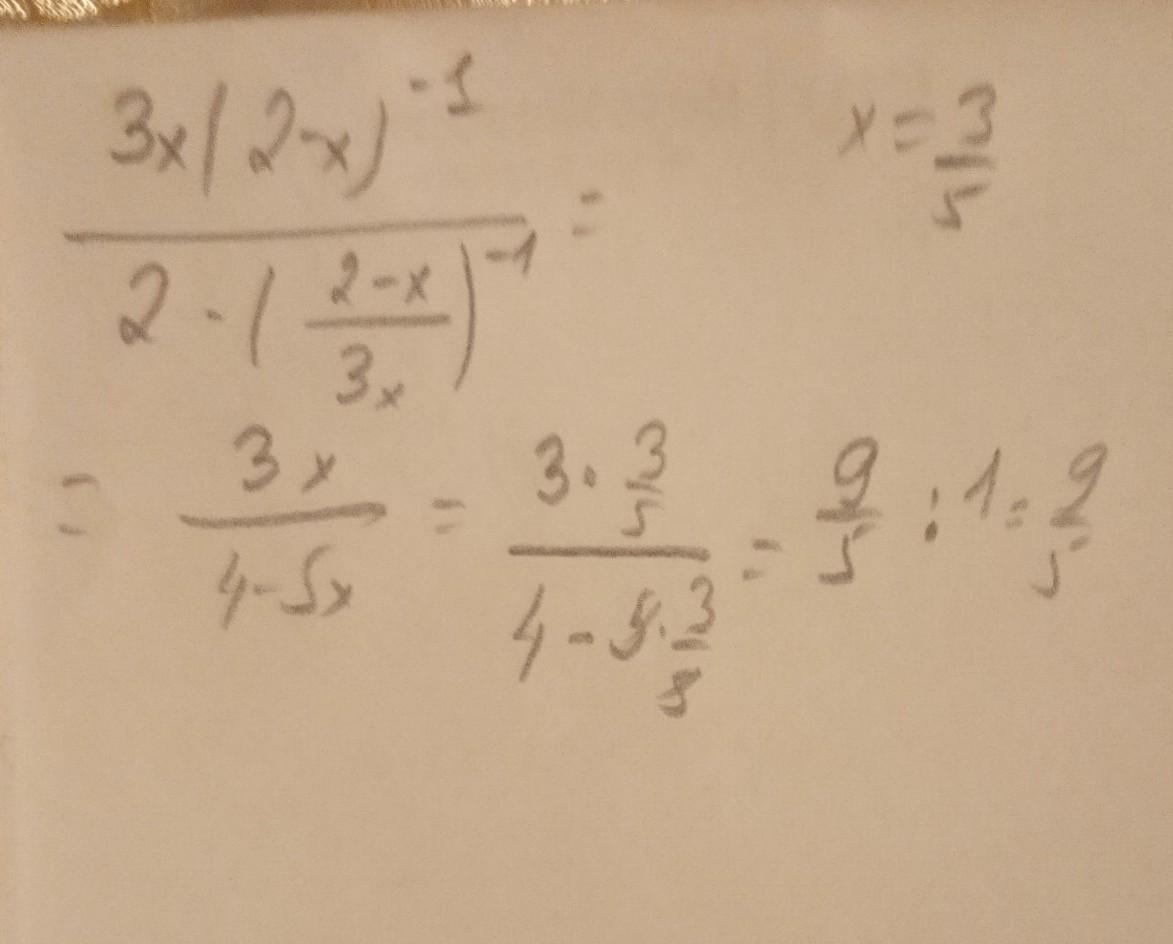 3x(2-x)^-1 / 2-((2-x)/3x)^-1 = x=3/5
= 3x/4-5x = 3·3/5 / 4-5·3/5 = 9/5 : 1 = 9/5